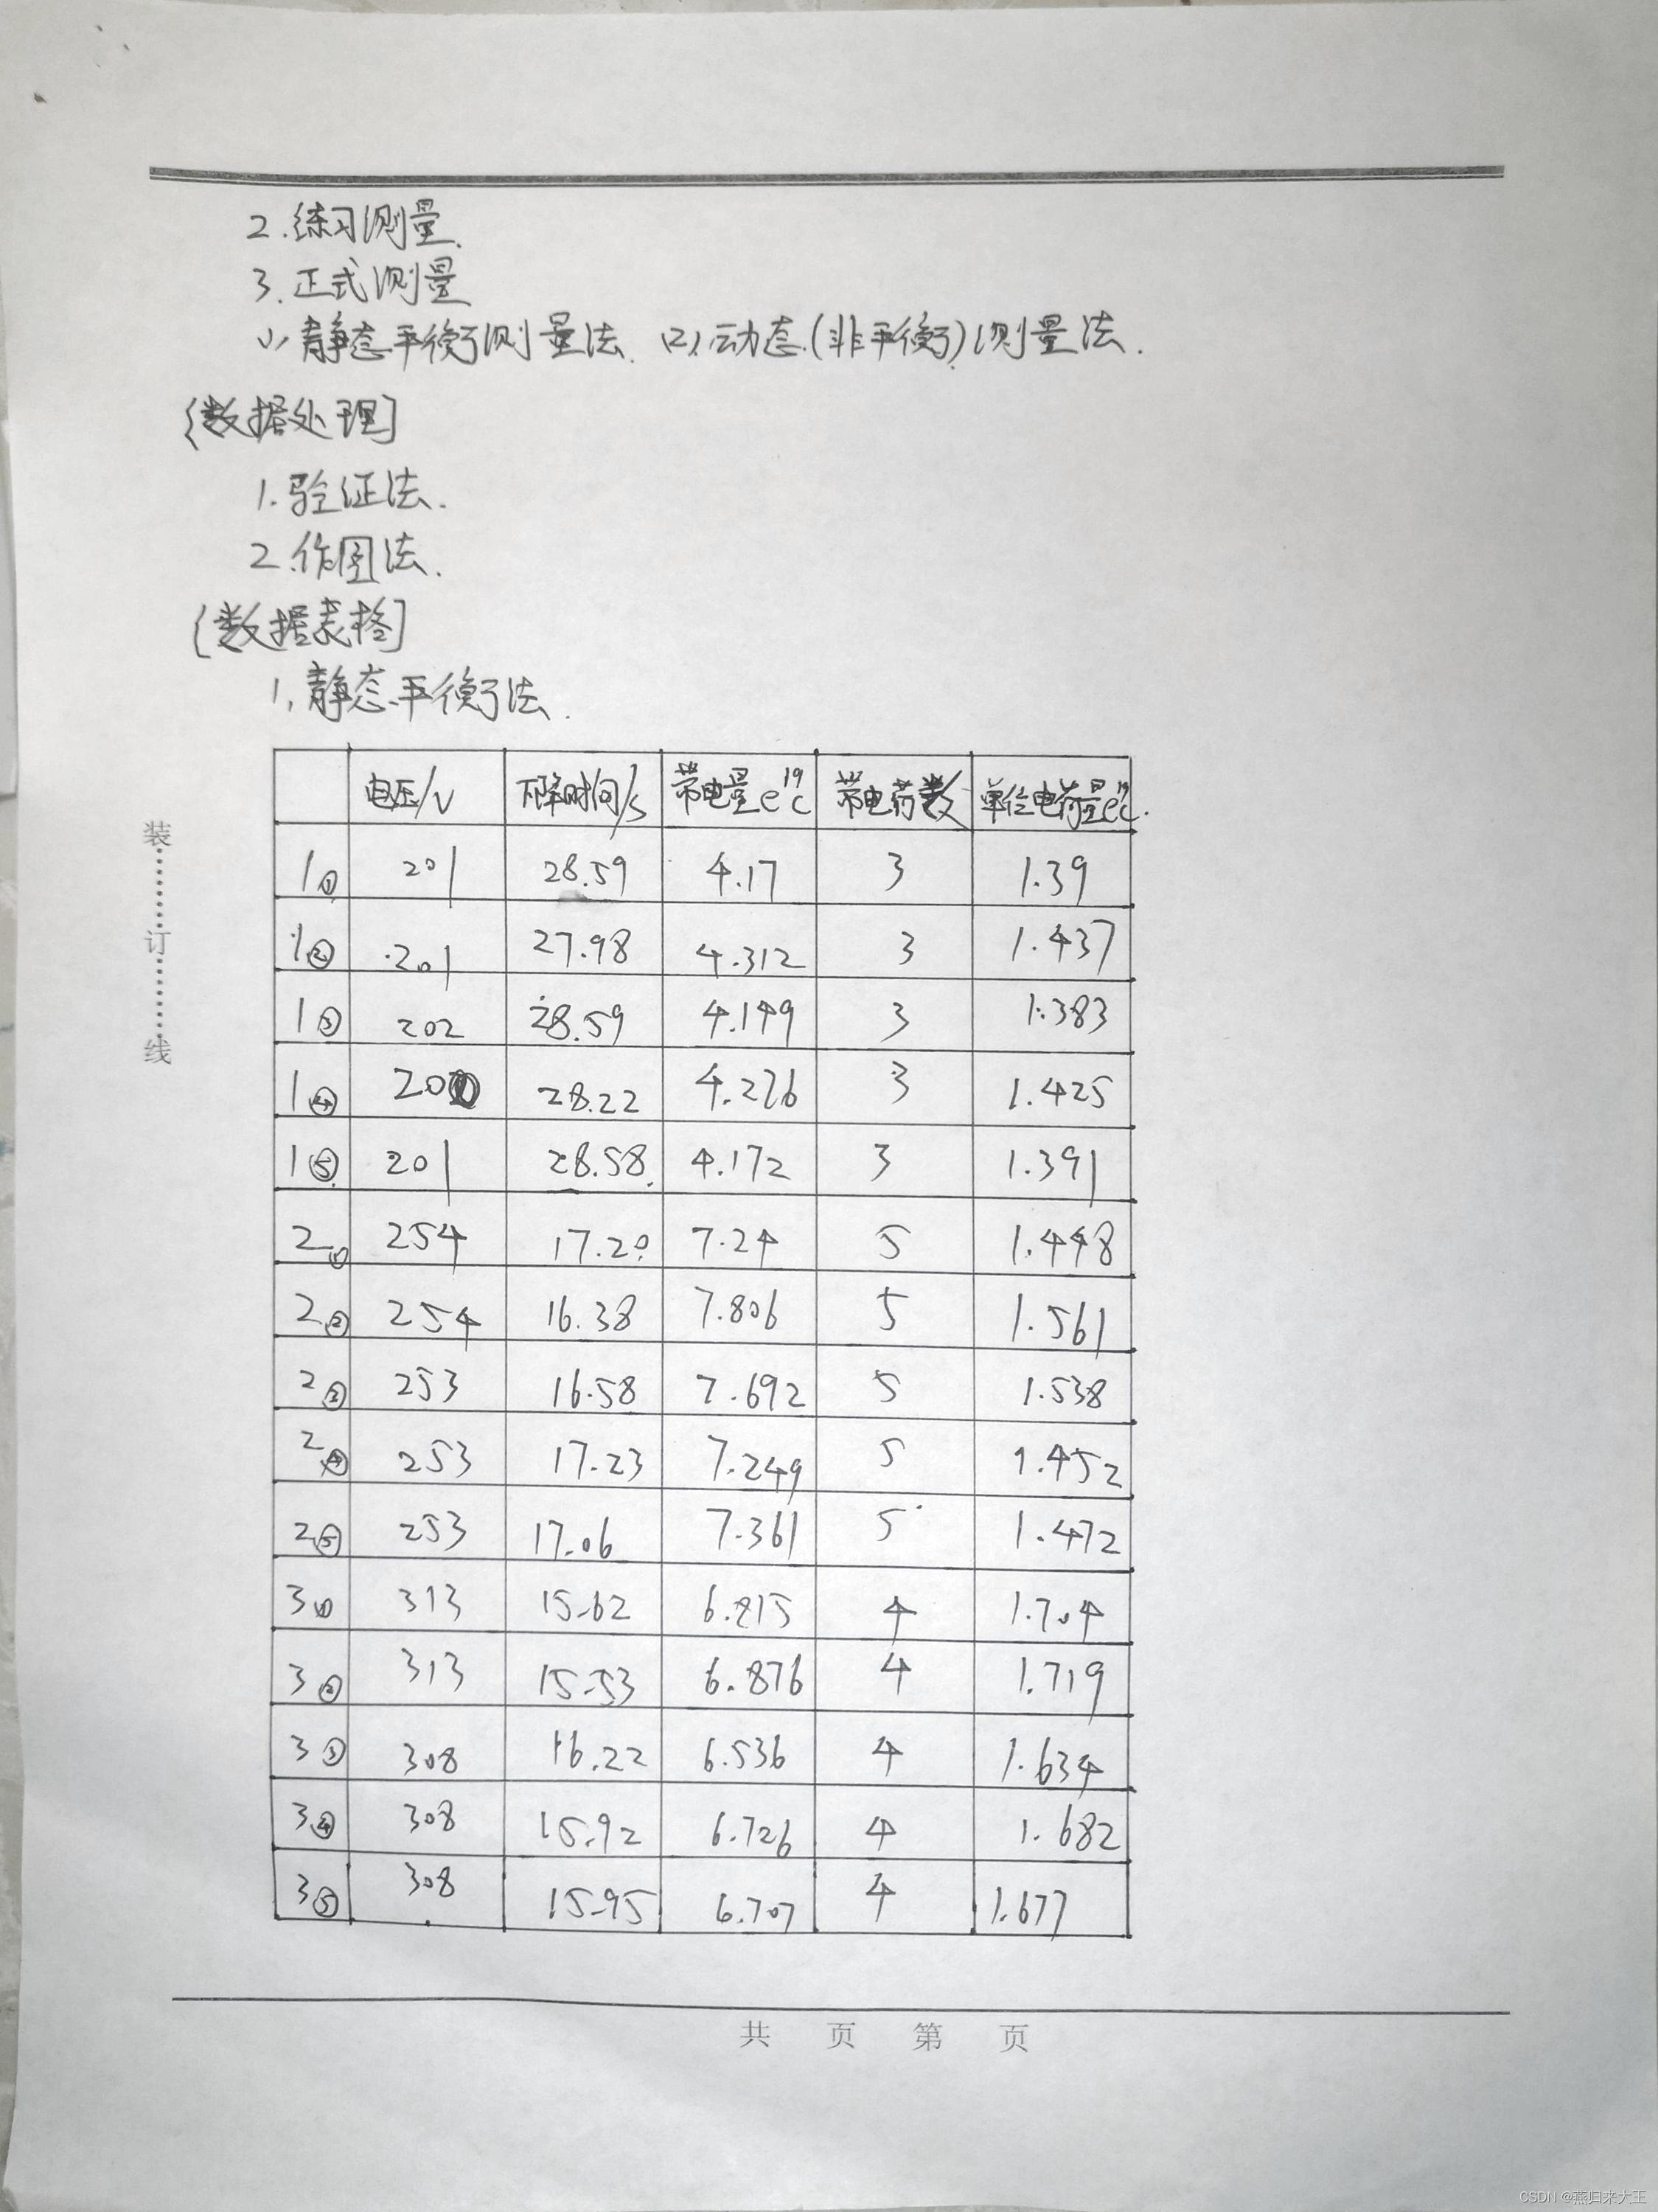 2.练习测量.
3.正式测量
(1)静态平衡测量法. (2)动态(非平衡)测量法.
[数据处理]
1.验证法.
2.作图法.
[数据表格]
1.静态平衡法.
电压/V 下降时间/s 带电量e19C 带电荷数 单位电荷量e19C.
1① 201 28.59 4.17 3 1.39
1② 201 27.98 4.312 3 1.437
1③ 202 28.59 4.149 3 1.383
1④ 200 28.22 4.276 3 1.425
1⑤ 201 28.58 4.172 3 1.391
2① 254 17.20 7.24 5 1.448
2② 254 16.38 7.806 5 1.561
2③ 253 16.58 7.692 5 1.538
2④ 253 17.23 7.249 5 1.452
2⑤ 253 17.06 7.361 5 1.472
3① 313 15.62 6.815 4 1.704
3② 313 15.53 6.876 4 1.719
3③ 308 16.22 6.536 4 1.634
3④ 308 15.92 6.726 4 1.682
3⑤ 308 15.95 6.707 4 1.677
装订线
共 页 第 页
CSDN @燕归来大王